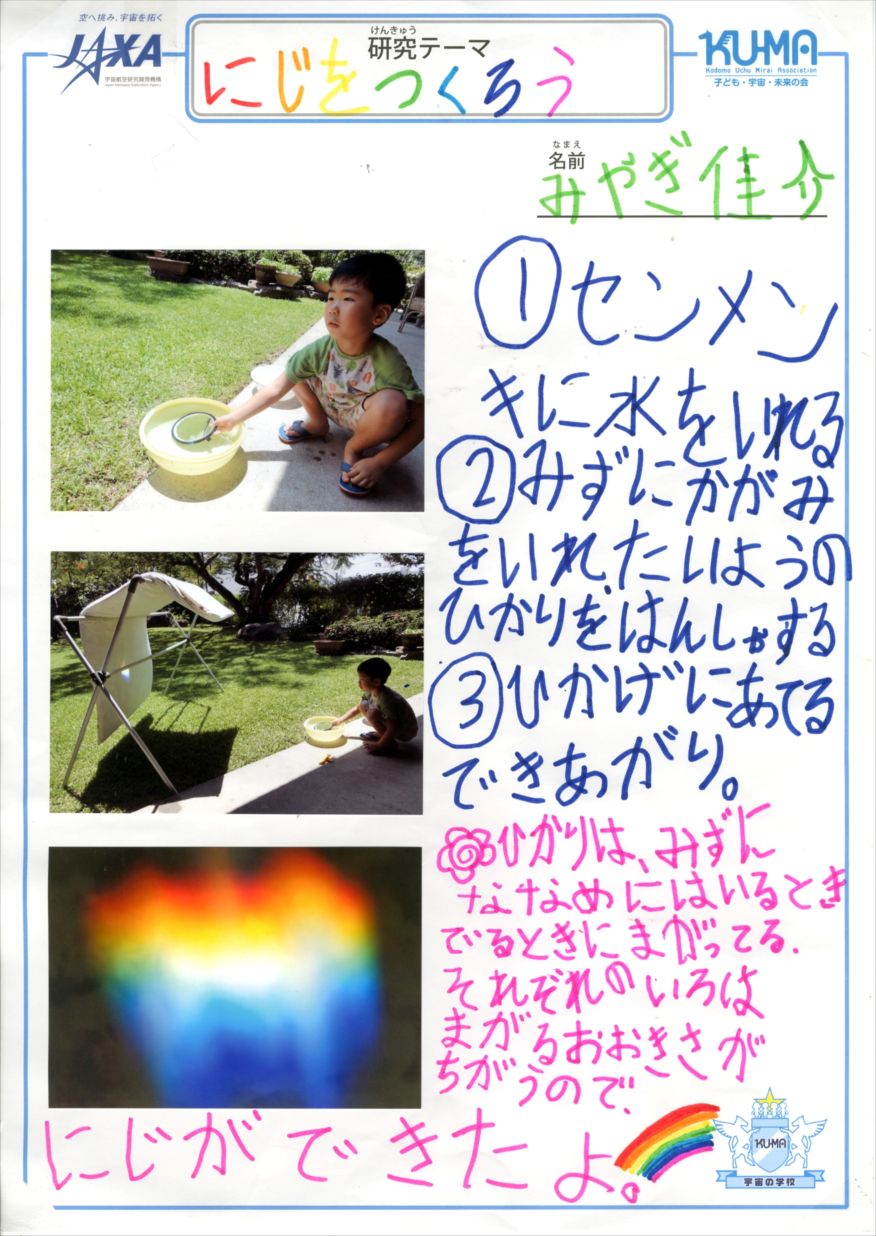 空へ挑み、宇宙を拓く
JAXA
宇宙航空研究開発機構
Japan Aerospace Exploration Agency
けんきゅう
研究テーマ
にじをつくろう
KU-MA
Kodomo Uchu Mirai Association
子ども・宇宙・未来の会
なまえ
名前
みやぎ佳介
①センメン
キに水をいれる
②みずにかがみ
をいれ、たいようの
ひかりをはんしゃする
③ひかげにあてる
できあがり。
ひかりは、みずに
ななめにはいるとき
でるときにまがってる.
それぞれのいろは
まがるおおきさが
ちがうので、
にじができたよ。
KU-MA
宇宙の学校